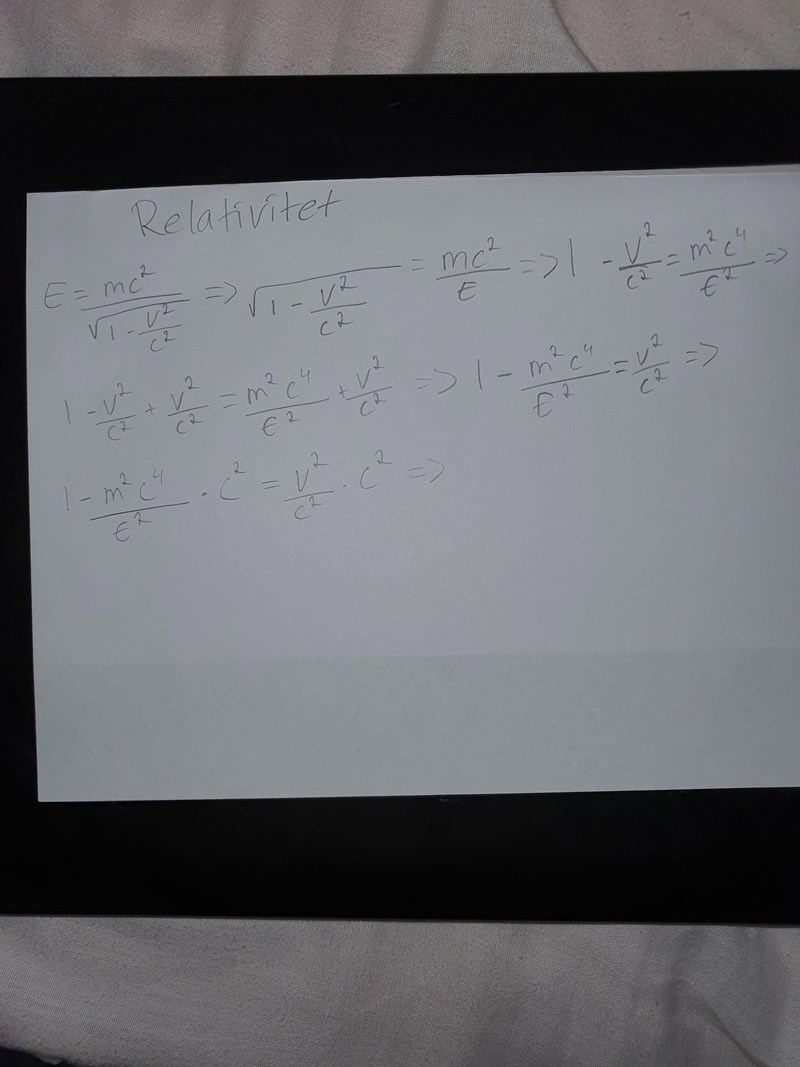 Relativitet
E = mc²/√(1 - v²/c²) => √(1 - v²/c²) = mc²/E => 1 - v²/c² = m²c⁴/E² =>
1 - v²/c² + v²/c² = m²c⁴/E² + v²/c² => 1 - m²c⁴/E² = v²/c² =>
1 - m²c⁴/E² · c² = v²/c² · c² =>